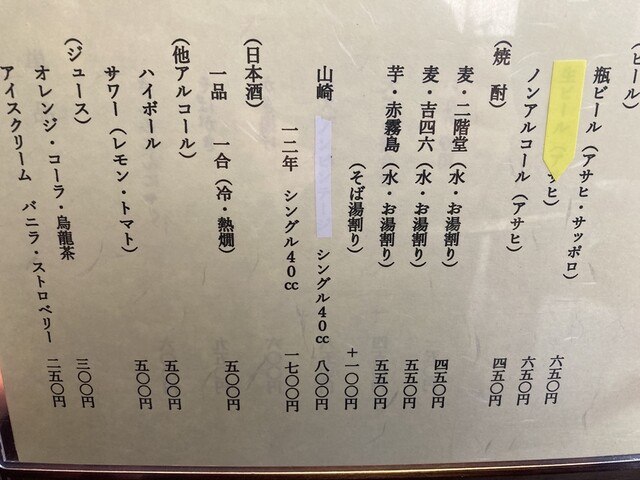 (ビール)
瓶ビール (アサヒ・サッポロ) 六五〇円
サヒ) 六五〇円
ノンアルコール (アサヒ) 四五〇円
(焼 酎)
麦・二階堂 (水・お湯割り) 四五〇円
麦・吉四六 (水・お湯割り) 五五〇円
芋・赤霧島 (水・お湯割り) 五五〇円
(そば湯割り) ＋一〇〇円
山崎 シングル４０㏄ 八〇〇円
一二年 シングル４０㏄ 一七〇〇円
(日本酒)
一品 一合 (冷・熱燗) 五〇〇円
(他アルコール)
ハイボール 五〇〇円
サワー (レモン・トマト) 五〇〇円
(ジュース)
オレンジ・コーラ・烏龍茶 三〇〇円
アイスクリーム バニラ・ストロベリー 二五〇円